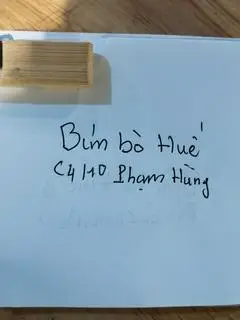 Bún bò Huế
C4/10 Phạm Hùng